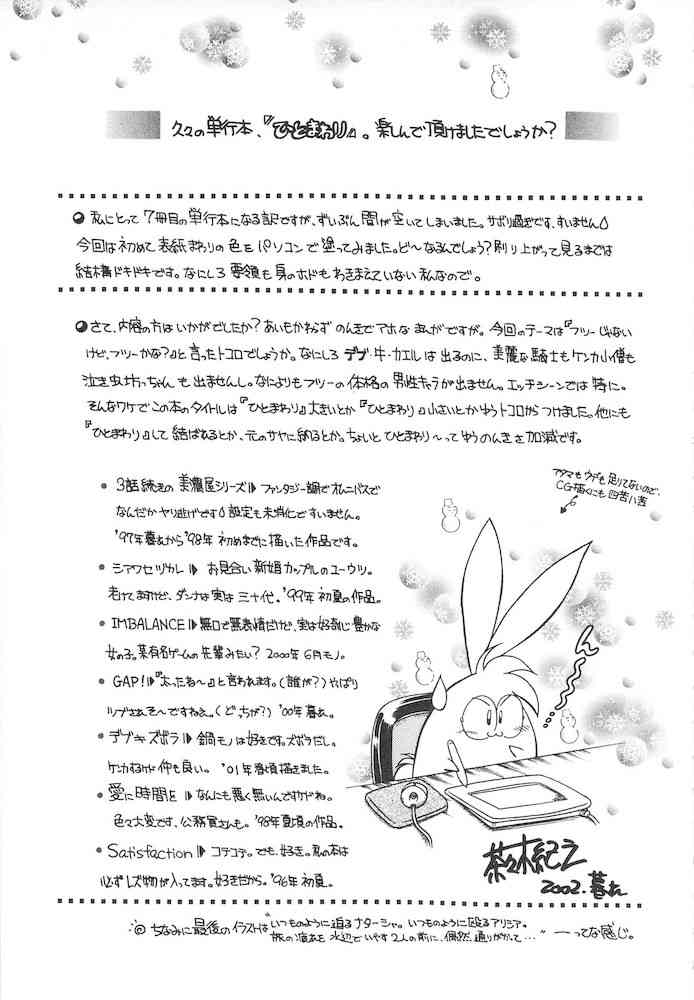 久々の単行本、『ひとまわり』。楽しんで頂けましたでしょうか?
私にとって7冊目の単行本になる訳ですが、ずいぶん間が空いてしまいました。サボり過ぎです、すいません
今回は初めて表紙まわりの色をパソコンで塗ってみました。ど〜なるんでしょう?刷り上がって見るまでは
結構ドキドキです。なにしろ要領も身のホドもわきまえていない私なので。
さて、内容の方はいかがでしたか?あいもかわらずのんきでアホなまんがですが。今回のテーマは『フツーじゃない
けど、フツーかな?』と言ったトコロでしょうか。なにしろデブ・牛・カエルは出るのに、美麗な騎士もケンカ小僧も
泣き虫坊っちゃんも出ませんし。なによりもフツーの体格の男性キャラが出ません。エッチシーンでは特に。
そんなワケでこの本のタイトルは『ひとまわり』大きいとか『ひとまわり』小さいとかゆうトコロからつけました。他にも
『ひとまわり』して結ばれるとか、元のサヤに納るとか。ちょいとひとまわり〜ってゆうのんきな加減です。
3話続きの美濃屋シリーズ ファンタジー調でオムニバスで
なんだかヤリ逃げです 設定も未消化ですいません。
'97年暮れから'98年初めまでに描いた作品です。
シアワセヅカレ お見合い新婚カップルのユーウツ。
老けてますけど、ダンナは実は三十代。'99年初夏の作品。
IMBALANCE 無口で無表情だけど、実は好奇心豊かな
女の子。某有名ゲームの先輩みたい?2000年6月モノ。
GAP! 『太ったね〜』と言われます。(誰が?)やっぱり
ツブされそ〜ですねえ。(どっちが?)'00年暮れ。
デブキズボラ 鍋モノは好きです。ズボラだし。
ケンカするけど仲も良い。'01年春頃描きました。
愛に時間を なんにも悪く無いんですけどね。
色々大変です、公務員さんも。'98年夏頃の作品。
Satisfaction コテコテ。でも、好き。私の本は
必ずレズ物が入ってます。好きだから。'96年初夏。
アタマもウデも足りてないので、
CG描くにも四苦八苦
ん〜〜
茶々木紀之
2002.暮れ
ちなみに最後のイラストは"いつものように迫るナターシャ。いつものように殴るアリシア。
旅の疲れを水辺でいやす2人の前に、偶然通りがかって…"ーってな感じ。